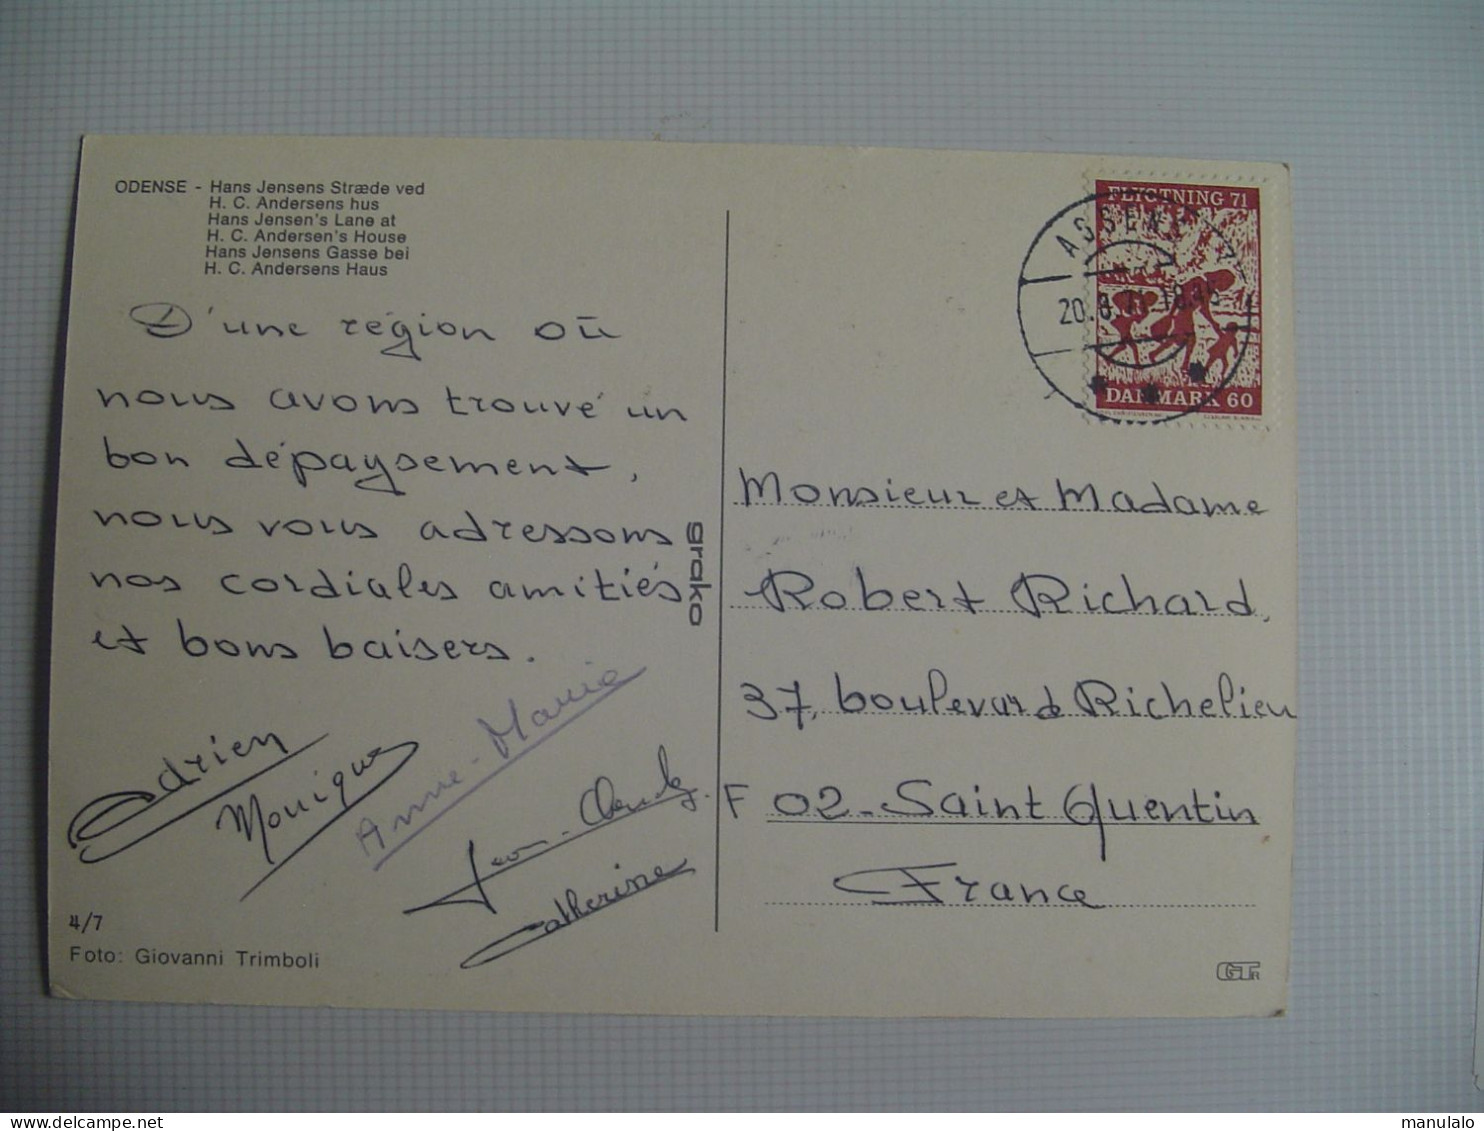 ODENSE - Hans Jensens Stræde ved
H. C. Andersens hus
Hans Jensen's Lane at
H. C. Andersen's House
Hans Jensens Gasse bei
H. C. Andersens Haus
D'une région où
nous avons trouvé un
bon dépaysement,
nous vous adressons
nos cordiales amitiés
et bons baisers.
Adrien
Monique
Anne-Marie
Jean-Claude
Catherine
4/7
Foto: Giovanni Trimboli
grako
FLYGTNING 71
ASSENS
20.8.71 18.45
DANMARK 60
Monsieur et Madame
Robert Richard,
37, boulevard de Richelieu
F 02-Saint Quentin
France
GTR
www.manulalo